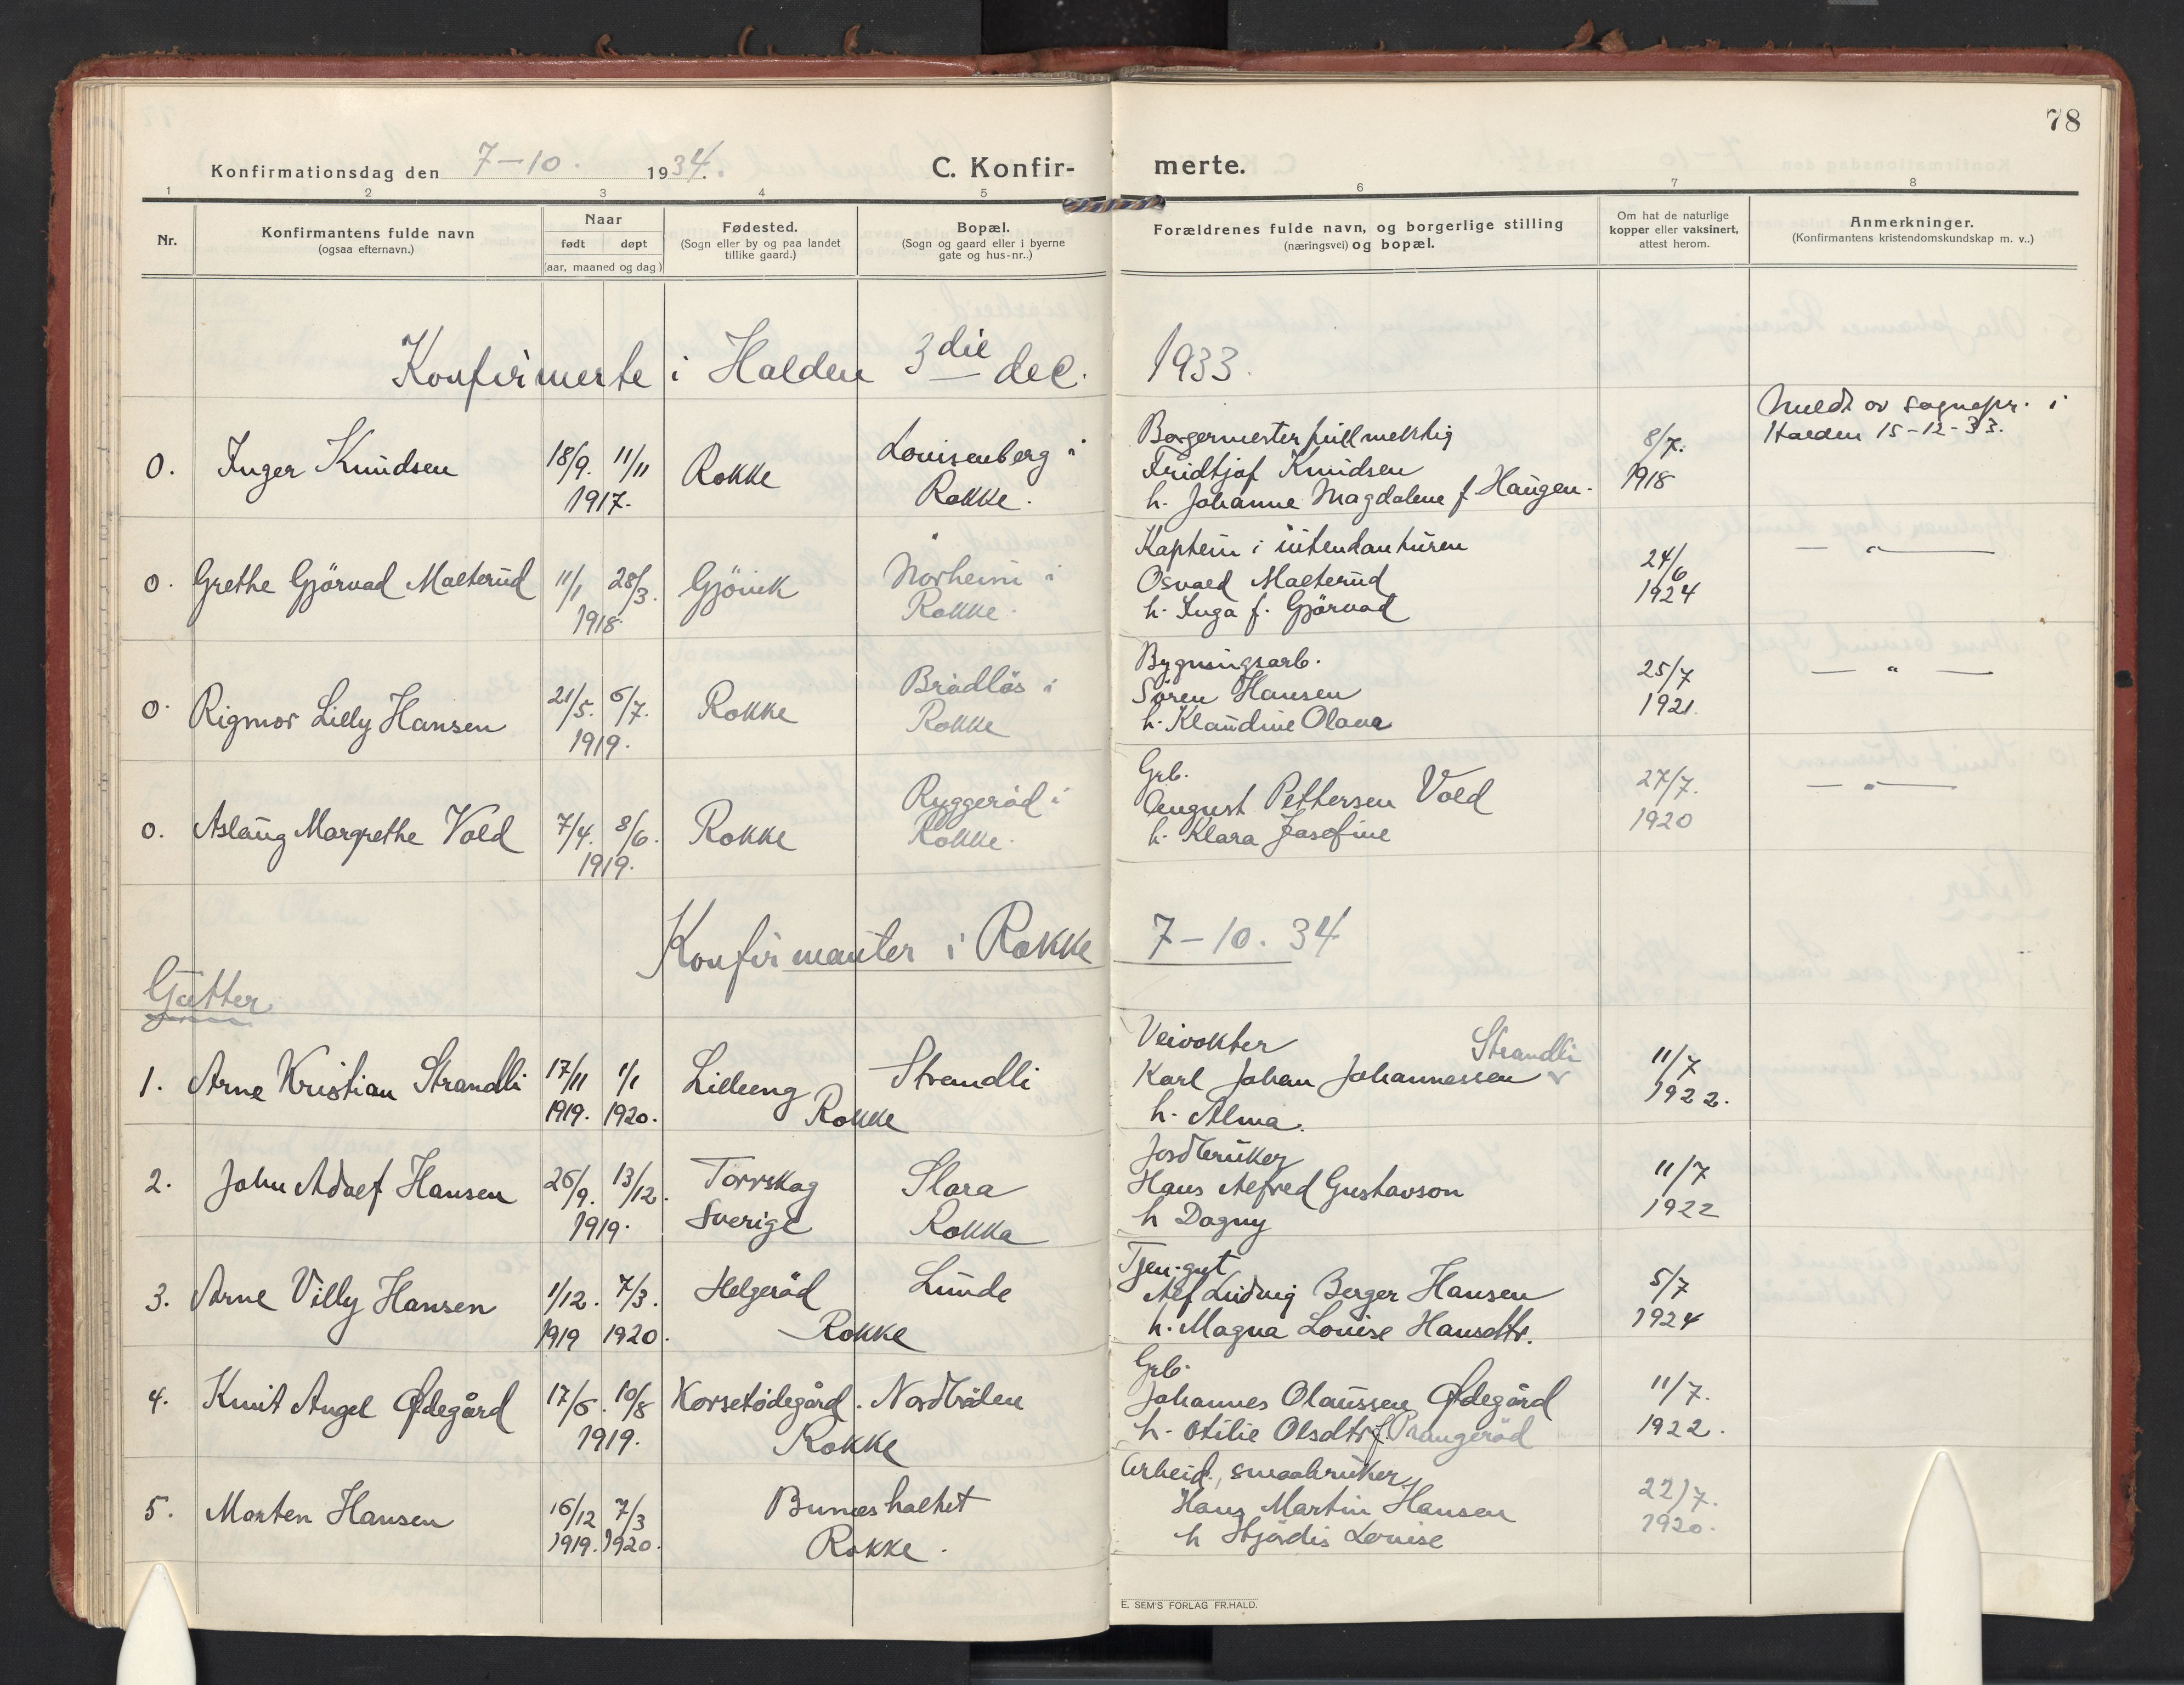 78
Konfirmationsdag den 7-10. 1934.
C. Konfir- merte.
1 2 3 4 5 6 7 8
Nr.
Konfirmantens fulde navn
(ogsaa efternavn.)
Naar
født døpt
(aar, maaned og dag)
Fødested.
(Sogn eller by og paa landet
tillike gaard.)
Bopæl.
(Sogn og gaard eller i byerne
gate og hus-nr..)
Forældrenes fulde navn, og borgerlige stilling
(næringsvei) og bopæl.
Om hat de naturlige
kopper eller vaksinert,
attest herom.
Anmerkninger.
(Konfirmantens kristendomskundskap m. v..)
Konfirmerte i Halden 3die dec. 1933.
0. Inger Knudsen
18/9. 11/11
1917.
Rokke
Louisenberg i
Rokke.
Borgermesterfullmektig
Fridtjof Knudsen
h. Johanne Magdalene f. Haugen.
8/7.
1918
Meldt av sognepr. i
Halden 15-12-33.
0. Grethe Gjörvad Malterud
11/1 28/3.
1918.
Gjövik
Norheim i
Rokke.
Kaptein i intendanturen
Osvald Malterud
h. Inga f. Gjörvad
24/6
1924
— " —
0. Rigmor Lilly Hansen
21/5. 6/7.
1919.
Rokke
Brådlös i
Rokke
Bygningsarb.
Sören Hansen
h. Klaudine Olava
25/7
1921.
— " —
0. Aslaug Margrethe Vold
7/4. 8/6.
1919.
Rokke
Ryggeröd i
Rokke.
Grb.
August Pettersen Vold
h. Klara Josefine
27/7.
1920
— " —
Konfirmanter i Rokke 7-10. 34
Gutter
1. Arne Kristian Strandli
17/11 1/1
1919. 1920.
Lilleeng
Rokke
Strandli
Veivokter
Karl Johan Johannessen Strandli
h. Alma.
11/7
1922.
2. John Adolf Hansen
26/9. 13/12.
1919.
Torrskog
Sverige
Slora
Rokke
Jordbruker
Hans Alfred Gustavson
h Dagny
11/7
1922
3. Arne Villy Hansen
1/12. 7/3.
1919 1920.
Helgeröd
Rokke
Lunde
Tjen.gut
Alf Ludvig Berger Hansen
h. Magna Louise Hansdtr.
5/7
1924
4. Knut Angel Ødegård
17/6. 10/8
1919.
Korsetödegård.
Rokke
Nordbråten
Grb.
Johannes Olaussen Ødegård
h. Otilie Olsdtr f. Prangeröd
11/7.
1922.
5. Morten Hansen
16/12 7/3
1919. 1920.
Rokke.
Arbeid., smaabruker
Hans Martin Hansen
h Hjördis Louise
22/7.
1920.
E. SEM'S FORLAG FR.HALD.